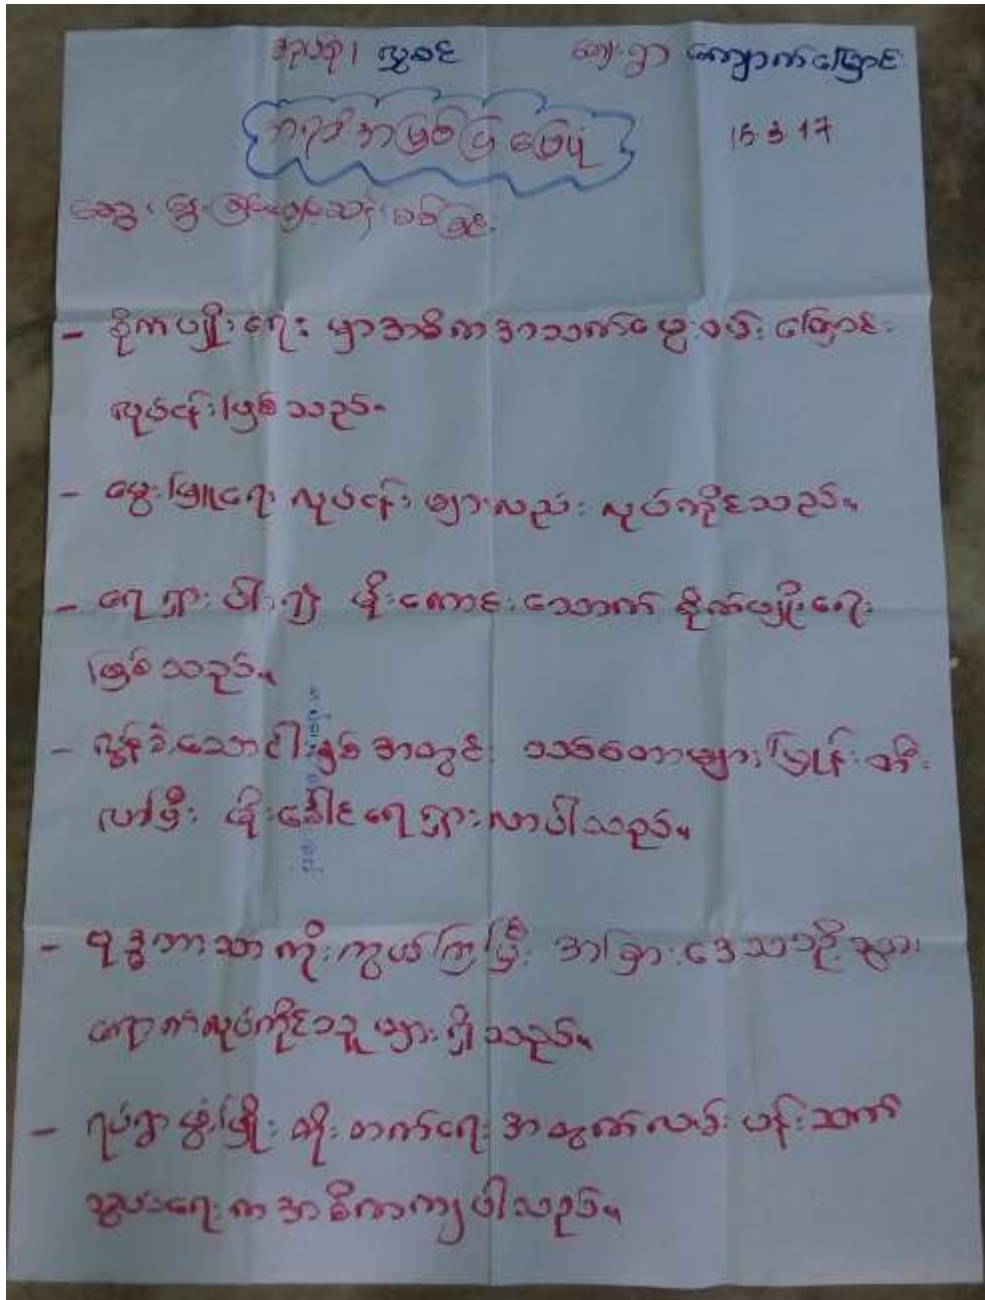 ကျေးရွာ ကျောက်ပြောင်
ဘဝဒီအမြစ်ပြဖြေပုံ
15 3 17
ဆွေးနွေးခြင်း
- စိုက်ပျိုးရေးမှာအဓိကအသက်မွေးဝမ်းကြောင်း
လုပ်ငန်းဖြစ်သည်။
- မွေးမြူရေးလုပ်ငန်းများလည်းလုပ်ကိုင်သည်။
- ရေရှားပါး၍ မိုးကောင်းသောက်စိုက်ပျိုးရေး
ဖြစ်သည်။
- လွန်ခဲ့သောငါးနှစ်အတွင်း သစ်တောများပြုန်းတီး
လာပြီး မိုးခေါင်ရေရှားလာပါသည်။
- ဗုဒ္ဓဘာသာကိုးကွယ်ကြပြီး အခြားဒေသသို့သွား
ရောက်လုပ်ကိုင်သူများရှိသည်။
- ရပ်ရွာဖွံ့ဖြိုးတိုးတက်ရေးအတွက်လမ်းပန်းဆက်
သွယ်ရေးကအဓိကကျပါသည်။